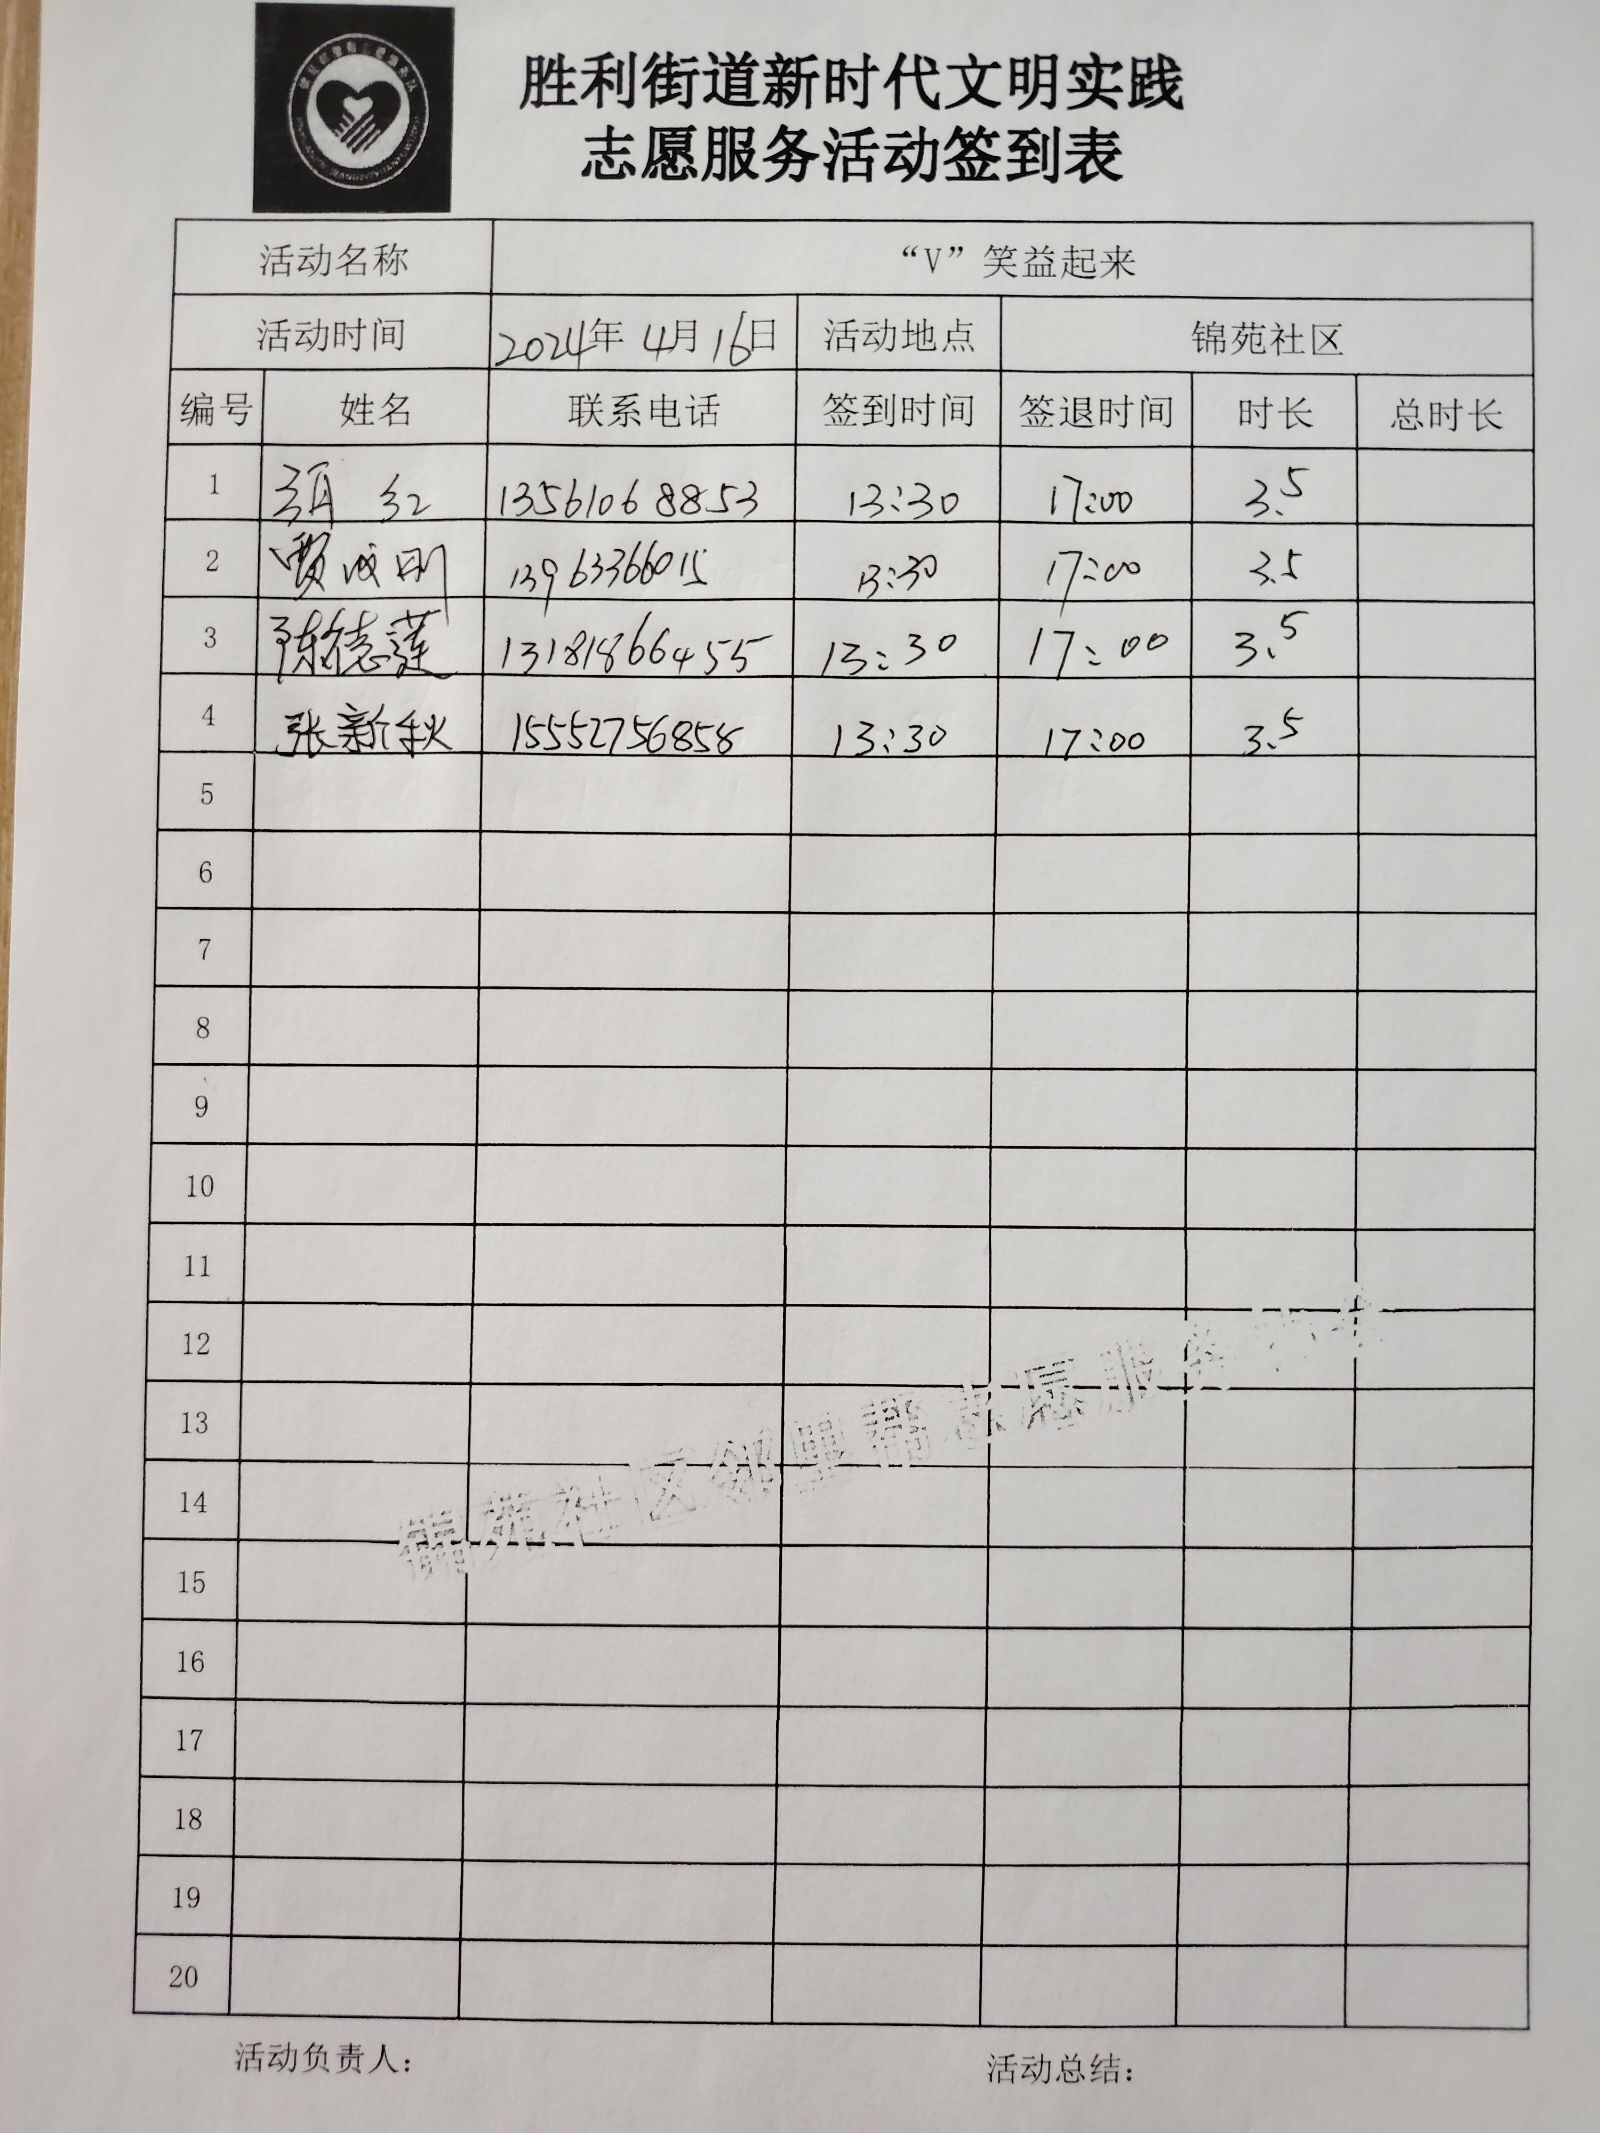 胜利街道新时代文明实践
志愿服务活动签到表
活动名称 “V”笑益起来
活动时间 2024年 4月16日 活动地点 锦苑社区
编号 姓名 联系电话 签到时间 签退时间 时长 总时长
1 红 13561068853 13:30 17:00 3.5
2 贾成刚 13963366015 13:30 17:00 3.5
3 陈德莲 13181866455 13:30 17:00 3.5
4 张新秋 15552756858 13:30 17:00 3.5
5
6
7
8
9
10
11
12
13
14
15
16
17
18
19
20
锦苑社区邻里帮志愿服务
活动负责人： 活动总结：